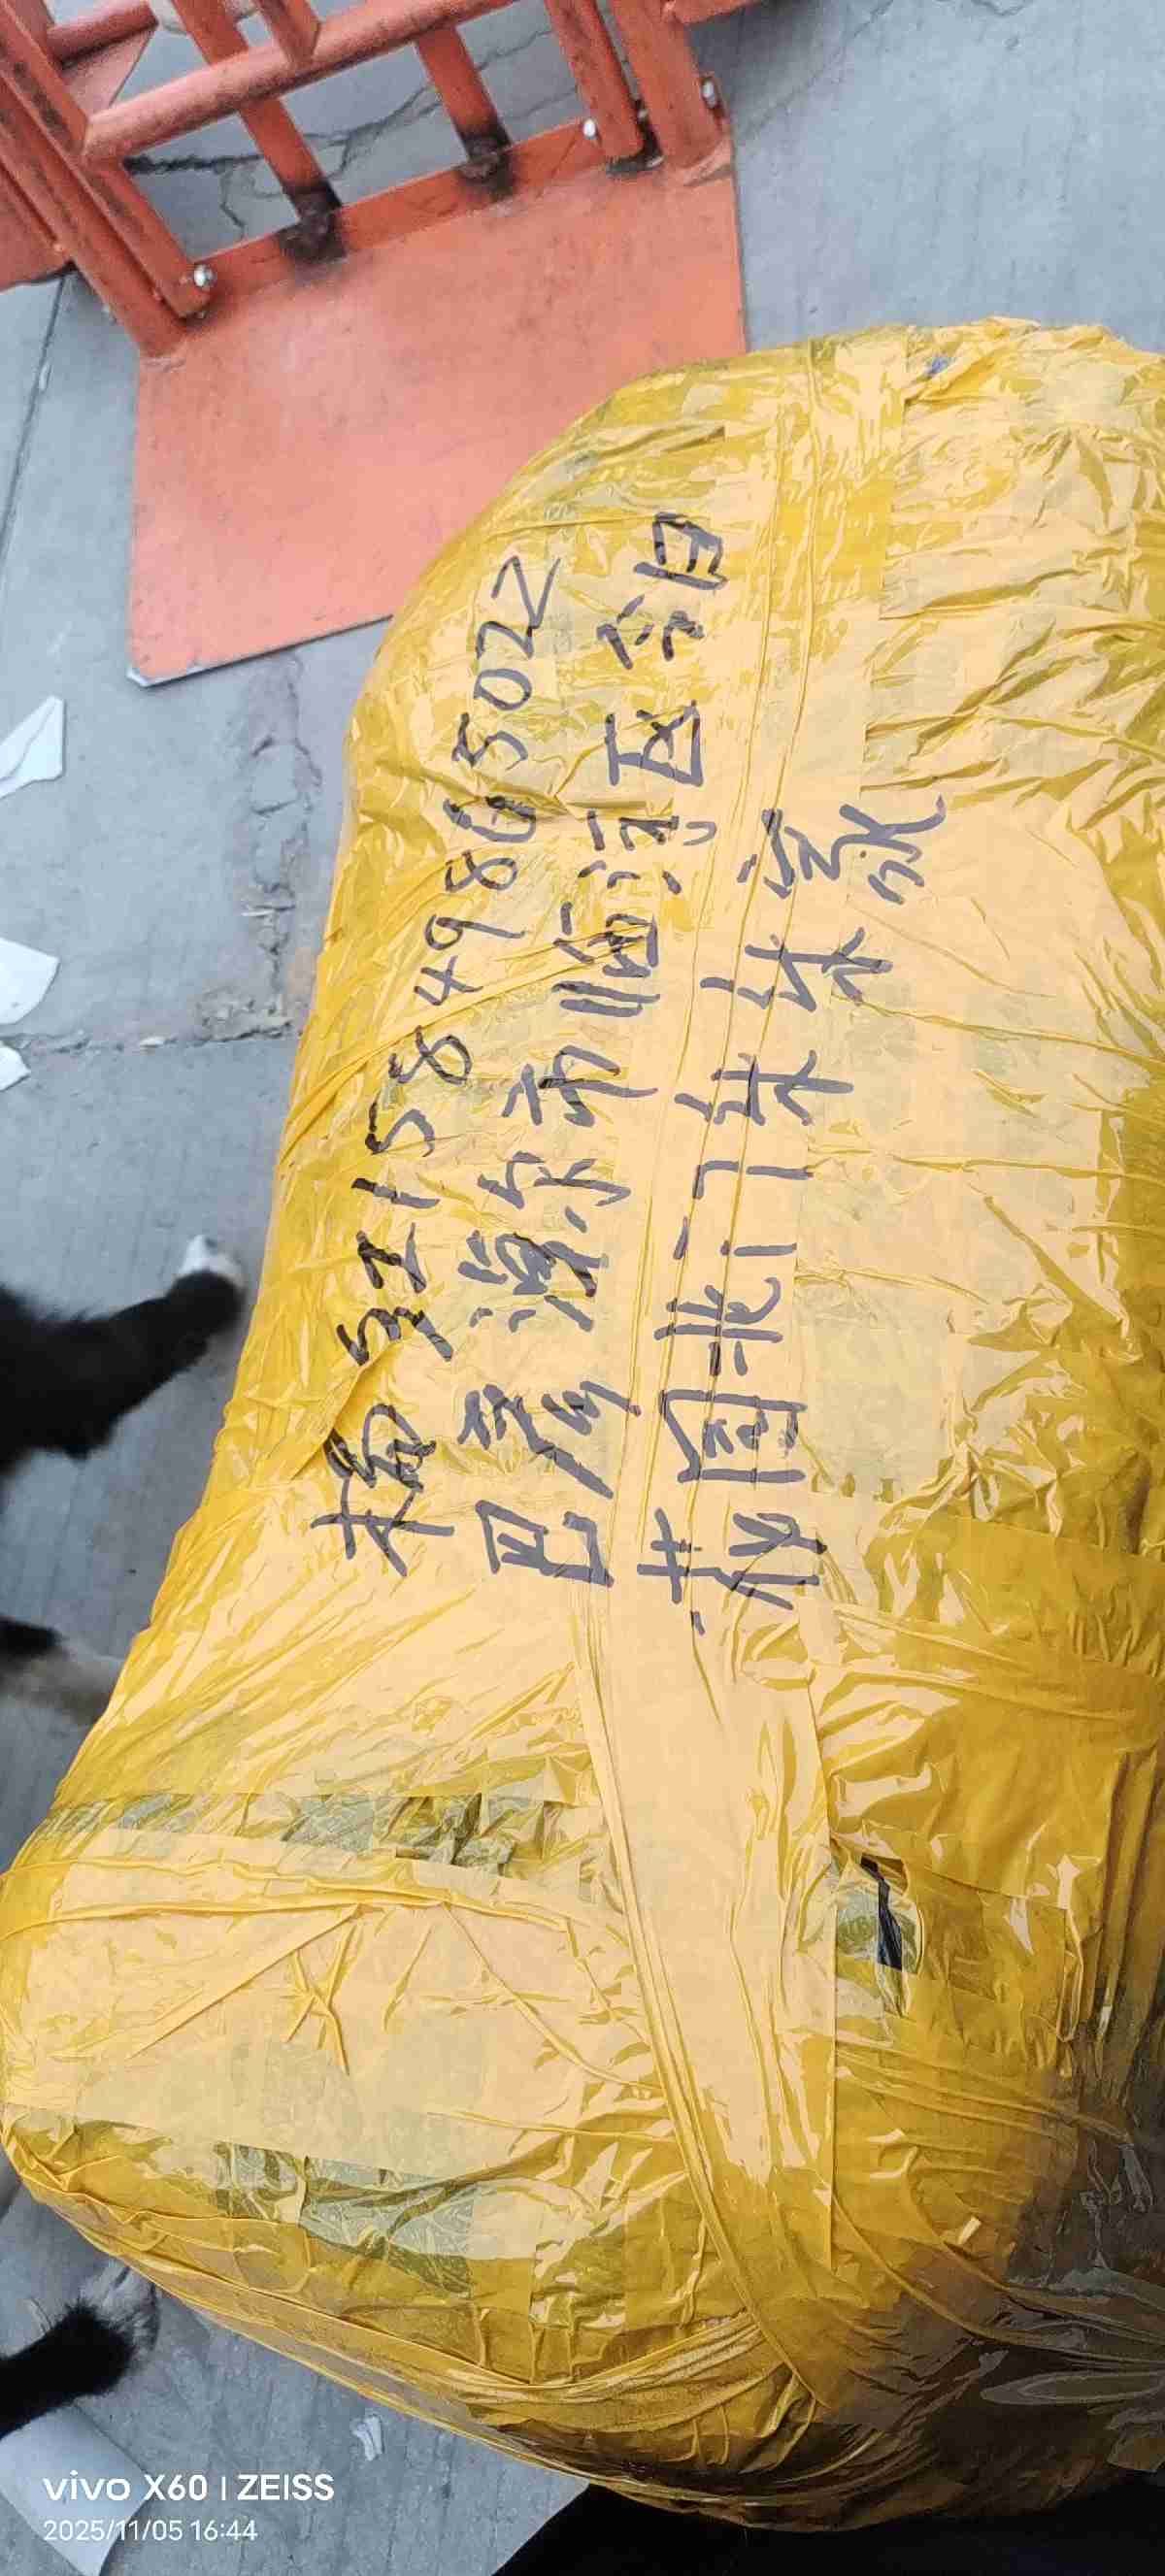 梅红15849865022
巴彦淖尔市临河区今日
花园北门朱朱家
vivo X60 | ZEISS
2025/11/05 16:44